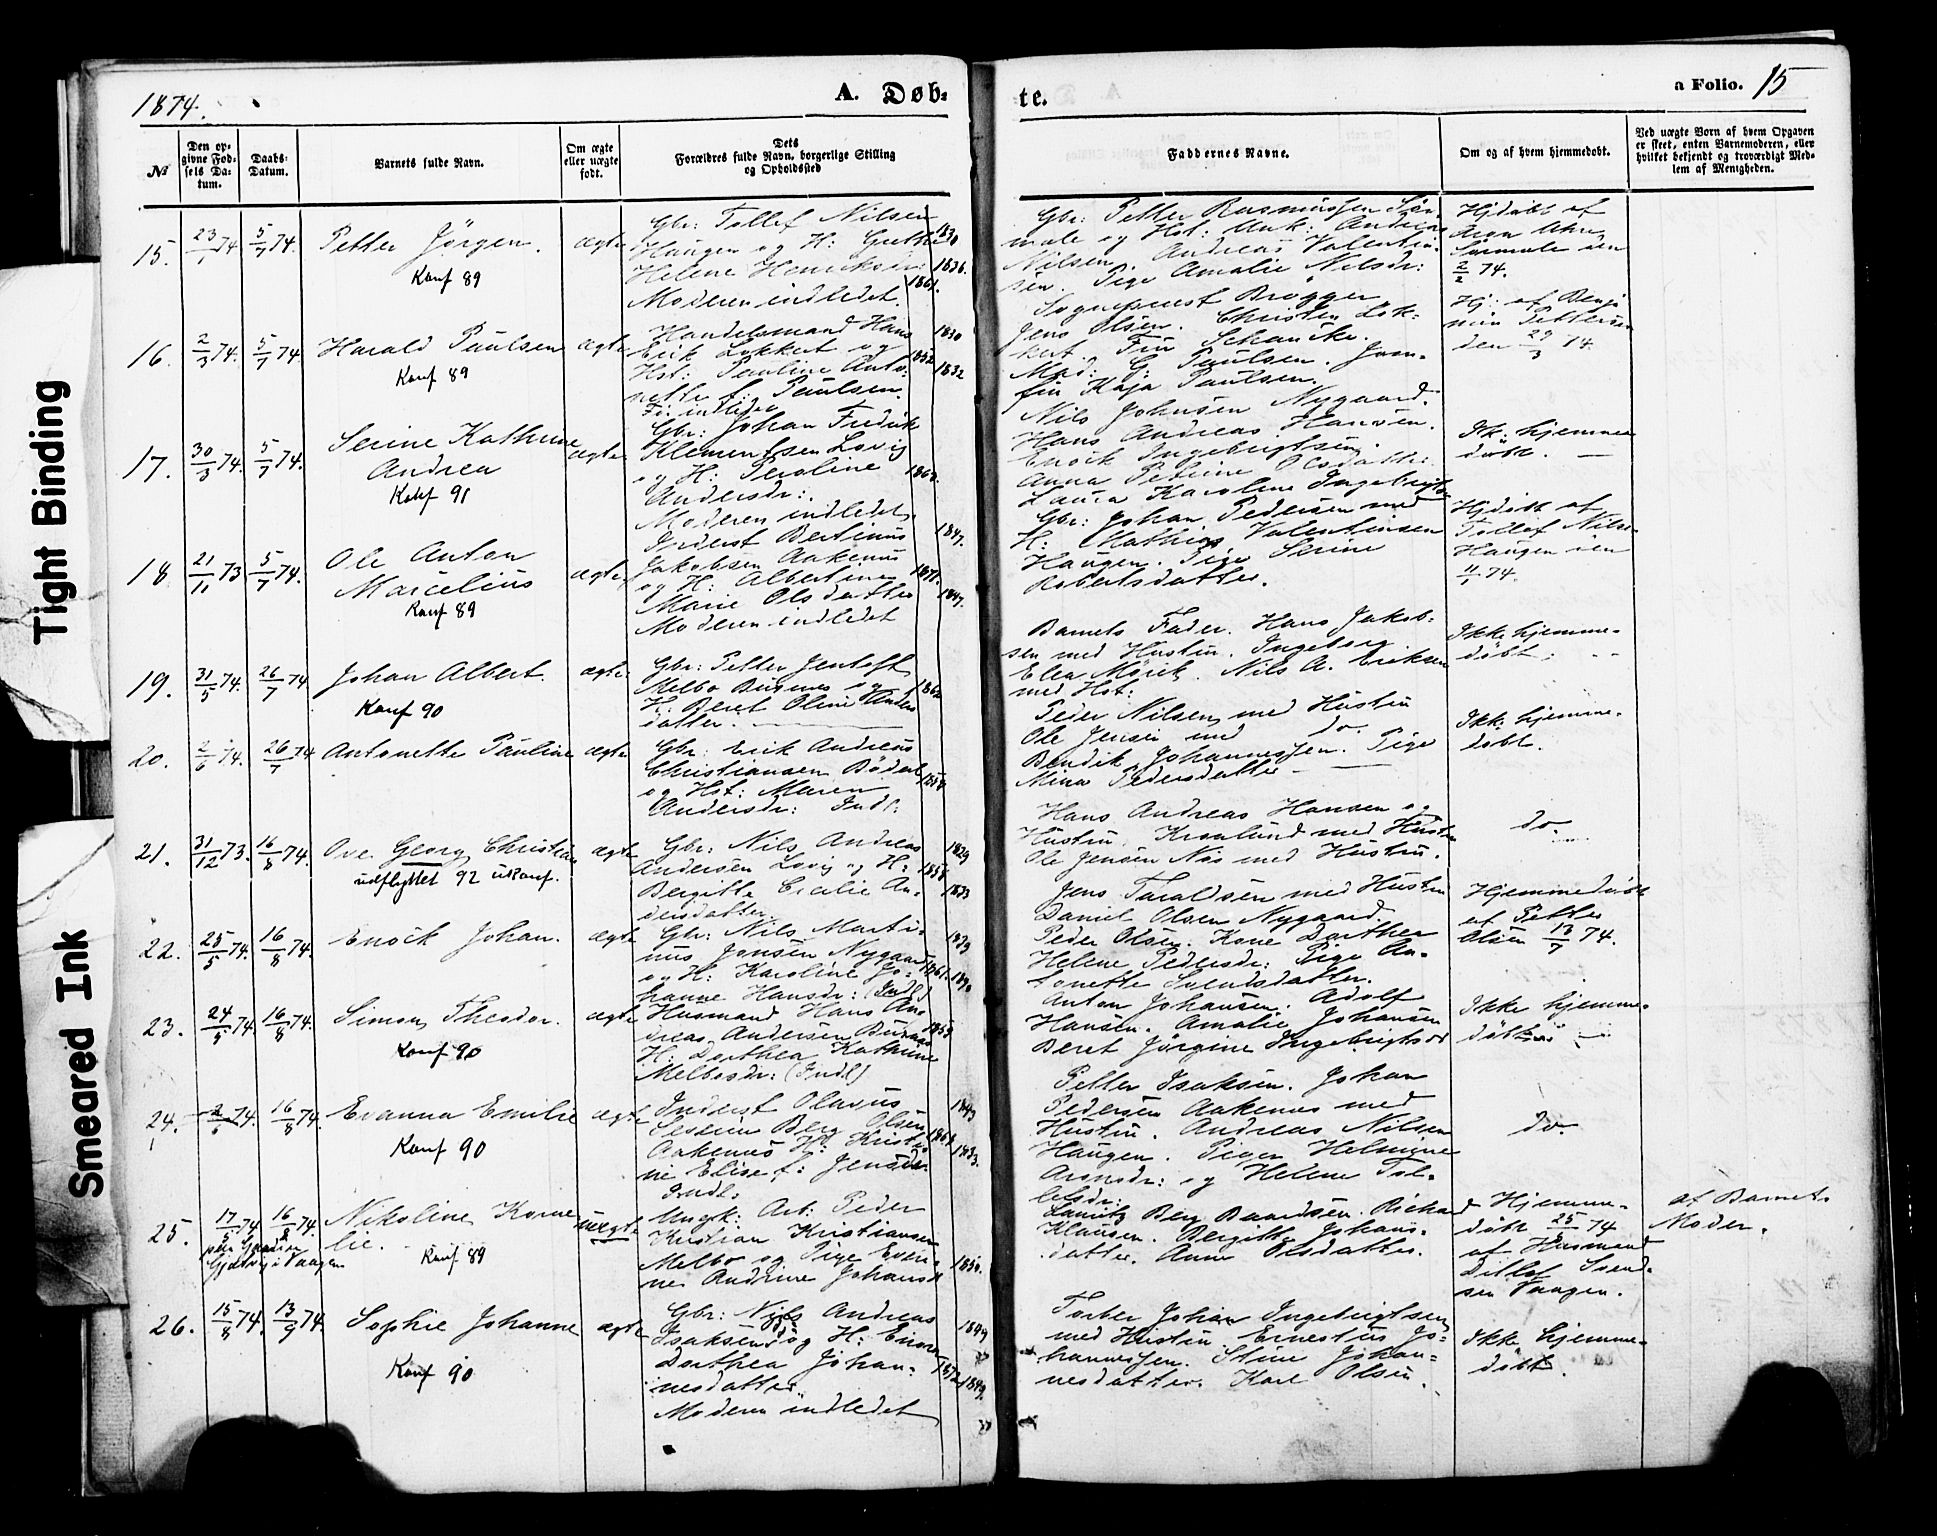 1874.
A. Døb-
te.
a Folio. 15
№
Den opgivne Fødsels Datum.
Daabs-Datum.
Barnets fulde Navn.
Om ægte eller uægte født.
Dets Forældres fulde Navn, borgerlige Stilling og Opholdssted
Faddernes Navne.
Om og af hvem hjemmedøbt.
Ved uægte Børn af hvem Opgaven er skeet, enten Barnemoderen, eller hvilket bekjendt og troværdigt Medlem af Menigheden.
Tight Binding
Smeared Ink
15. 23/1 74 5/7 74. Petter Jörgen. ægte
Konf 89
Gbr: Tollef Nilsen 1830
Haugen og H: Grethe
Helene Henriksdr: 1836.
Moderen indledet. 1861.
Gbr: Petter Rasmussen Sör-
male og Hst: Unk: Andreas
Nilsen. Andreas Valentin-
sen. Pige Amalie Nilsdr:
Hjdöbt af
Sörmale den
2/2 74.
16. 2/3 74. 5/7 74 Harald Paulsen ægte
Konf 89
Handelsmand Hans 1830
Erik Lökkert og 1852
Hst: Pauline Anto- 1832
nette f: Paulsen.
Sogneprest Brøgger
Jens Olsen. Christen Lök-
kert. Fru Schancke.
Mad: G: Paulsen. Jom-
fru Kaja Paulsen.
Hj: af Benja
min Pettersen
den 29/3 74.
17. 30/3 74. 5/7 74. Serine Kathrine
Andrea ægte
Konf 91
Gbr: Johan Fredrik
Klementsen Lovig
og H: Peroline 1860.
Andersdr:.
Moderen indledet,
Nils Johnsen Nygaard.
Hans Andreas Hansen.
Enok Ingebrigtsen.
Anna Petrine Olsdatter.
Laura Karoline Ingebrigts
Ik: hjemme
döbt. —
18. 21/11 73 5/7 74. Ole Anton
Marcelius ægte
Konf 89
Inderst Bertinus 1847.
Jakobsen Aakenus
og H: Albertine 1871.
Marie Olsdatter 1847.
Moderen indledet
Gbr: Johan Pedersen med
H: Mathias Valentinsen
Haugen. Pige Serine
Robertsdatter.
Hjdöbt af
Tollef Nilsen
Haugen den
11/1 74.
19. 31/5 74. 26/7 74 Johan Albert. ægte
Konf 90
Gbr: Petter Jentoft
Melbo Busnes og 1862
H: Beret Oline Anders
datter.
Barnets Fader. Hans Jakob-
sen med Hustru. Ingeborg
Elea Mörck. Nils A. Eriksen
med Hst:
Ikke hjemme-
döbt.
20. 2/6 74. 26/7 74 Antonette Pauline ægte
Gbr: Erik Andreas
Christiansen Bödal 1858
og Hst: Maren
Andersdr: Indl:
Peder Nilsen med Hustru
Ole Jensen med do.
Bendik Johannessen. Pige
Mina Pedersdatter
Ikk: hjemme-
döbt.
21. 31/12 73. 16/8 74. Ove Georg Christian ægte
udflyttet 92 ukonf.
Gbr: Nils Andreas 1829
Andersen Lovig og H: 1858.
Bergitte Cecilie An- 1833
dersdatter.
Hans Andreas Hansen og
Hustru. Kronlund med Hustru
Ole Jensen Nös med Hustru.
do.
22. 25/5 74. 16/8 74. Enoch Johan. ægte
Gbr: Nils Marti- 1839
nus Jonsen Nygaard 1861.
og H: Karoline Jo- 1840
hanne Hansdr: (Indl)
Jens Taraldsen med Hustru
Daniel Olsen Nygaard.
Peder Olsen. Kone Dorthea
Helene Pedersdr: Pige An-
tonette Svendsdatter.
Hjemmedöbt
af Petter
Olsen 13/7 74.
23. 24/5 74 16/8 74. Simon Theodor. ægte
Konf 90
Husmand Hans An
dreas Andersen Busnes 1853
H: Dorthea Kathrine
Melbosdr: (Indl)
Anton Johansen. Adolf
Hansen. Amalie Johansen
Beret Jörgine Ingebrigtsdr
Ikke hjemme-
döbt
24. 2/5 74. 16/8 74. Evanna Emilie ægte
Konf 90
Inderst Olavus 1843
Severin Berg Olsen 1864
Aakenus H: Kristi 1833.
ne Elise f: Jensdr
Indl.
Petter Isaksen. Johan
Pedersen Aakenus med
Hustru. Andreas Nilsen
Haugen. Piger Helmine
Aronsdr: og Helene Tol-
lefsdr:
do.
25. 17/5 74 16/8 74. Nikoline Korne
lie. uægte
Konf 89
Ungk: Arb: Peder
Kristian Kristiansen
Melbo og Pige Everi-
ne Andrine Johansdr 1850.
Lauritz Berg Baardsen. Richard
Klausen. Bergitte Johans-
datter. Anne Olsdatter.
Hjemme-
döbt 25/5 74
af Husmand
Ditlef Svend-
sen Vaagen.
af Barnets
Moder.
26. 15/8 74. 13/9 74. Sophie Johanne ægte
Konf 90
Gbr: Nils Andreas 1849
Isaksen og H: Enora
Dorthea Johan- 1872
nesdatter 1849.
Moderen indledet
Torber Johan Ingebrigtsen
med Hustru Ernestus Jo-
hannessen. Stine Johan-
nesdatter. Karl Olsen.
Ikke hjemme-
döbt.